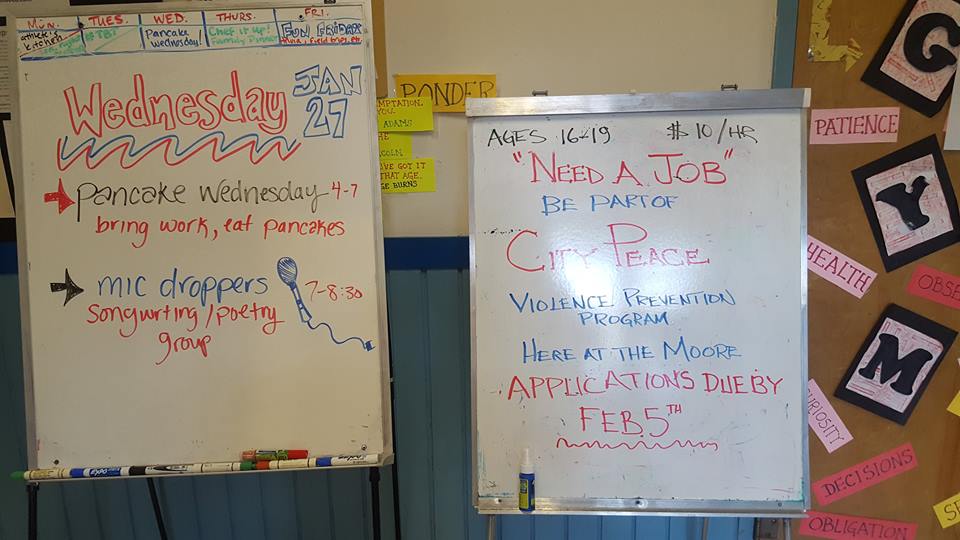 MON.
TUES.
WED.
THURS.
FRI.
athlete's
kitchen
TBT
Pancake
Wednesday!
Chef it Up!
Family Dinner
FUN FRIDAY
trivia, field trips, etc.
Wednesday
JAN
27
pancake Wednesday 4-7
bring work, eat pancakes
mic droppers 7-8:30
songwriting/poetry
group
PONDER
MPTATION.
YOU.
ADAMS
HE
COLN
VE GOT IT
THAT AGE.
GE BURNS
AGES 16-19 $10/HR
"NEED A JOB"
BE PART OF
CITY PEACE
VIOLENCE PREVENTION
PROGRAM
HERE AT THE MOORE
APPLICATIONS DUE BY
FEB 5TH
G
Y
M
PATIENCE
HEALTH
OBSE
URIOSITY
DECISIONS
OBLIGATION
SE